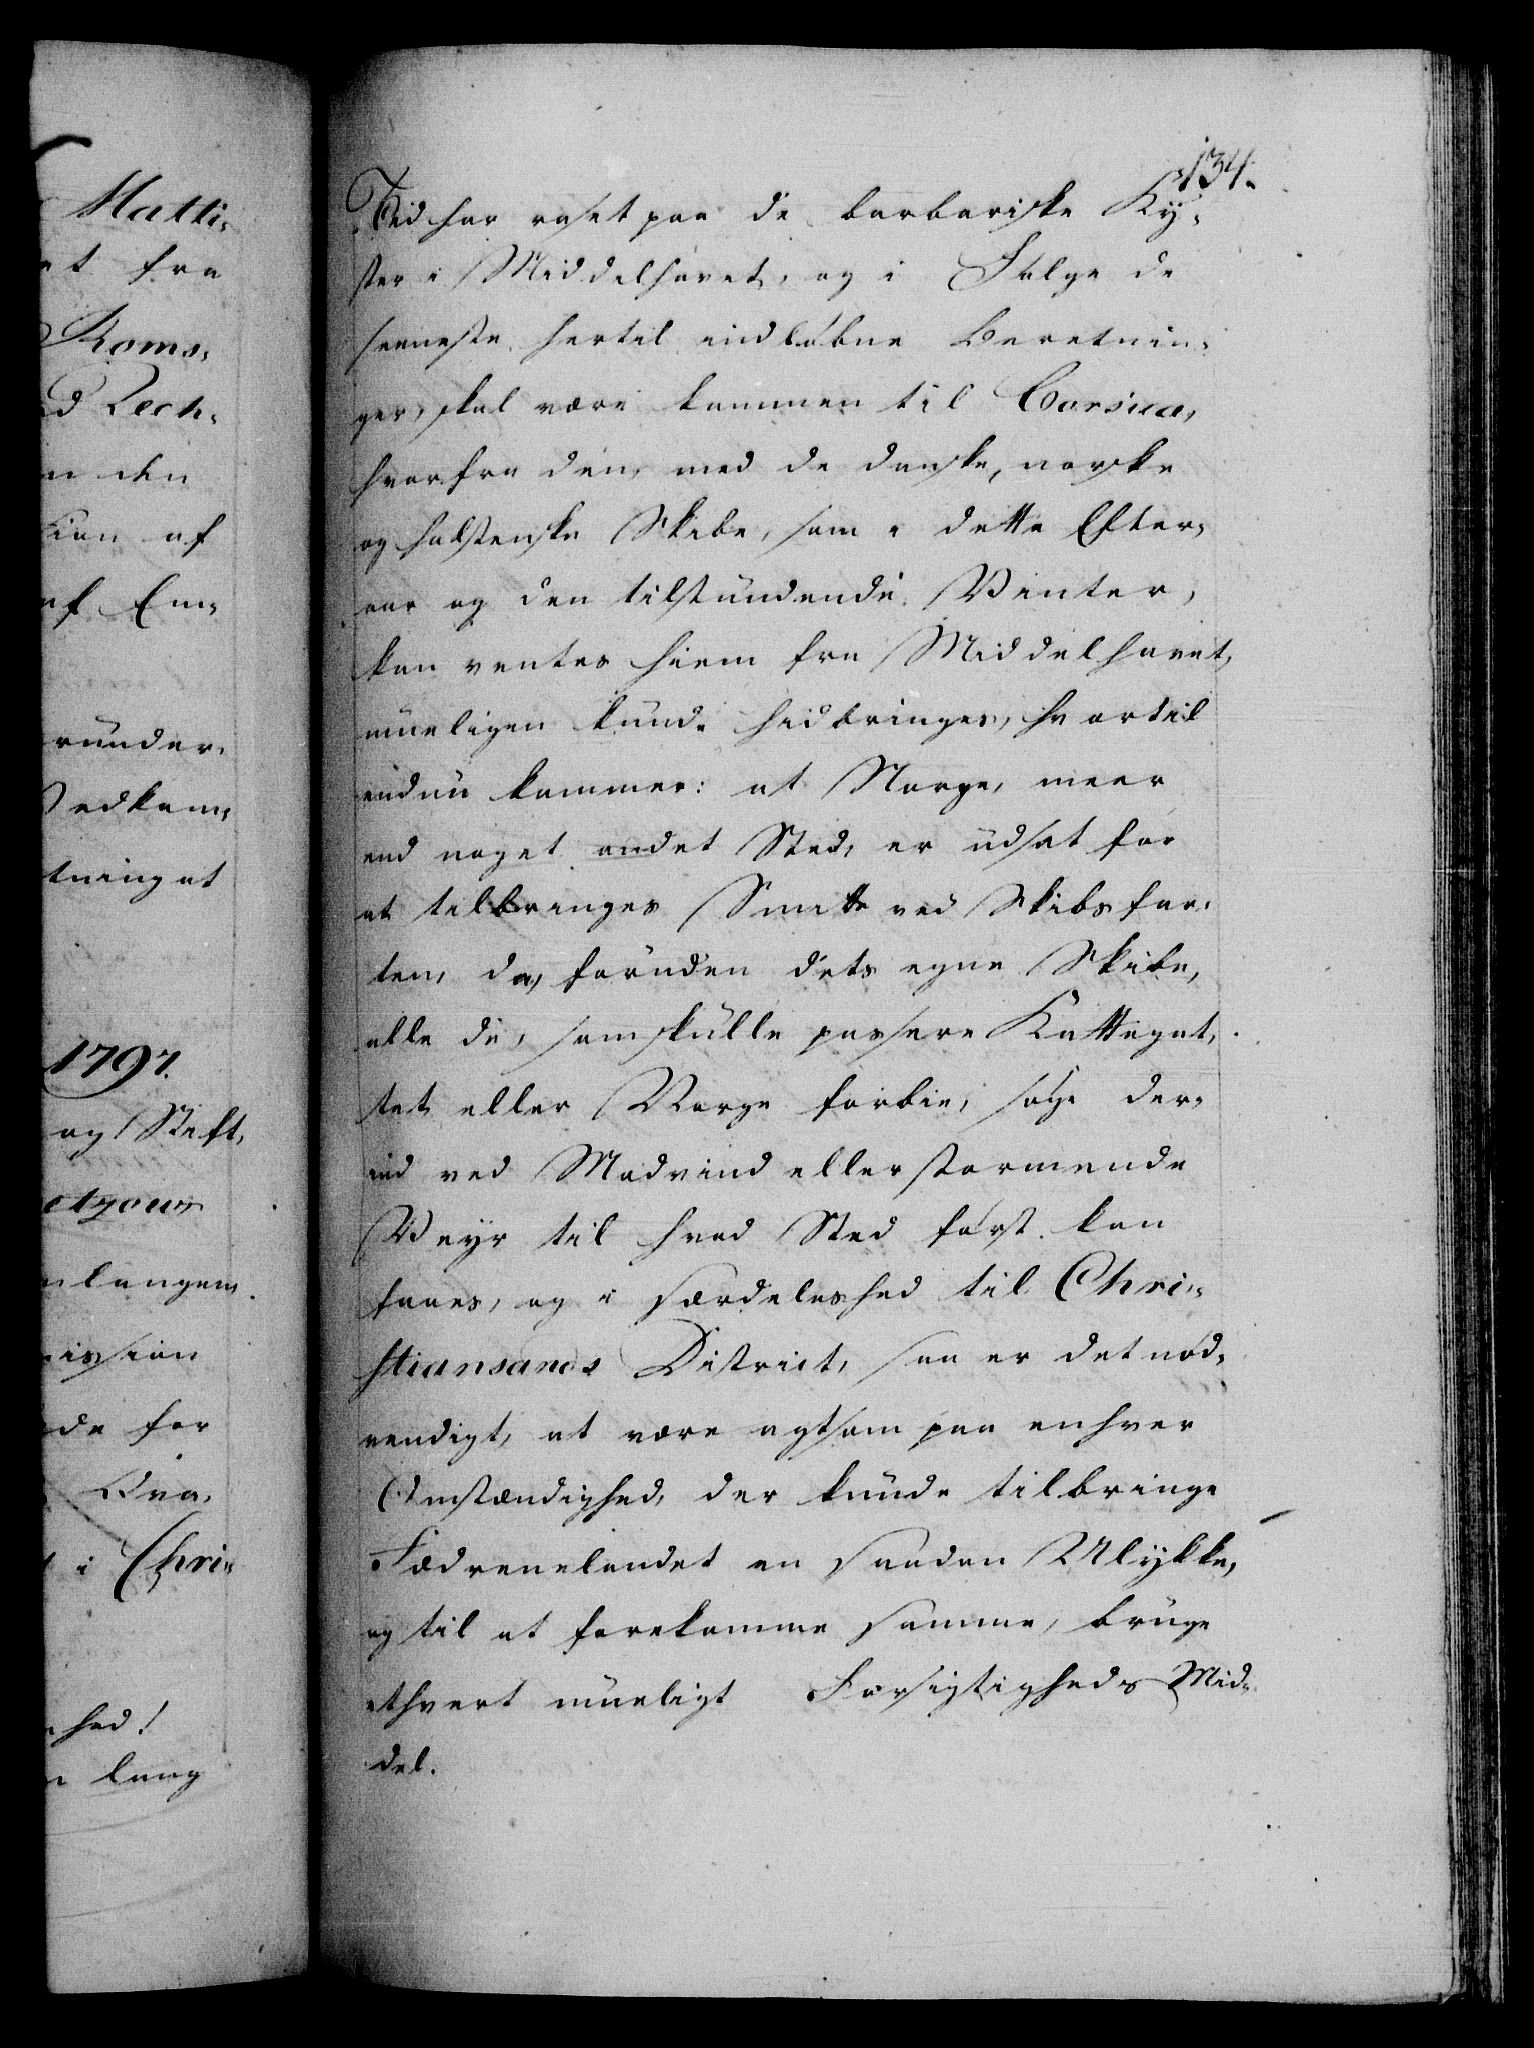 Matti-
at fra
Roms-
d Lech-
n den
tion af
af Em-
runder-
Vedkom-
tning at
1797.
og Stift-
etzouw
nlangem
mission
de for
Qva-
t i Chri-
nhed!
n lang
134.
Tid har raset paa de barbariske Ky-
ster i Middelhavet, og i Følge de
seeneste hertil indløbne Beretnin-
ger, skal være kommen til Corsica,
hvorfra den, med de danske, norske
og holstenske Skibe, som i dette Efter-
aar og den tilstundende Vinter,
kan ventes hiem fra Middelhavet,
mueligen kunde hidbringes, hvortil
endnu kommer: at Norge, meer
end noget andet Sted, er udsat for
at tilbringes Smitte ved Skibsfar-
ten, da, foruden dets egne Skibe,
alle de, som skulle passere Kattegat-
tet eller Norge forbie, søge der-
ind ved Modvind eller stormende
Veyr til hvad Sted først kan
faaes, og i særdeleshed til Chri-
stiansands District, saa er det nød-
vendigt, at være agtsom paa enhver
Omstændighed, der kunde tilbringe
Fædrenelandet en saadan Ulykke,
og til at forekomme samme, bruge
ethvert mueligt Forsigtigheds Mid-
del.